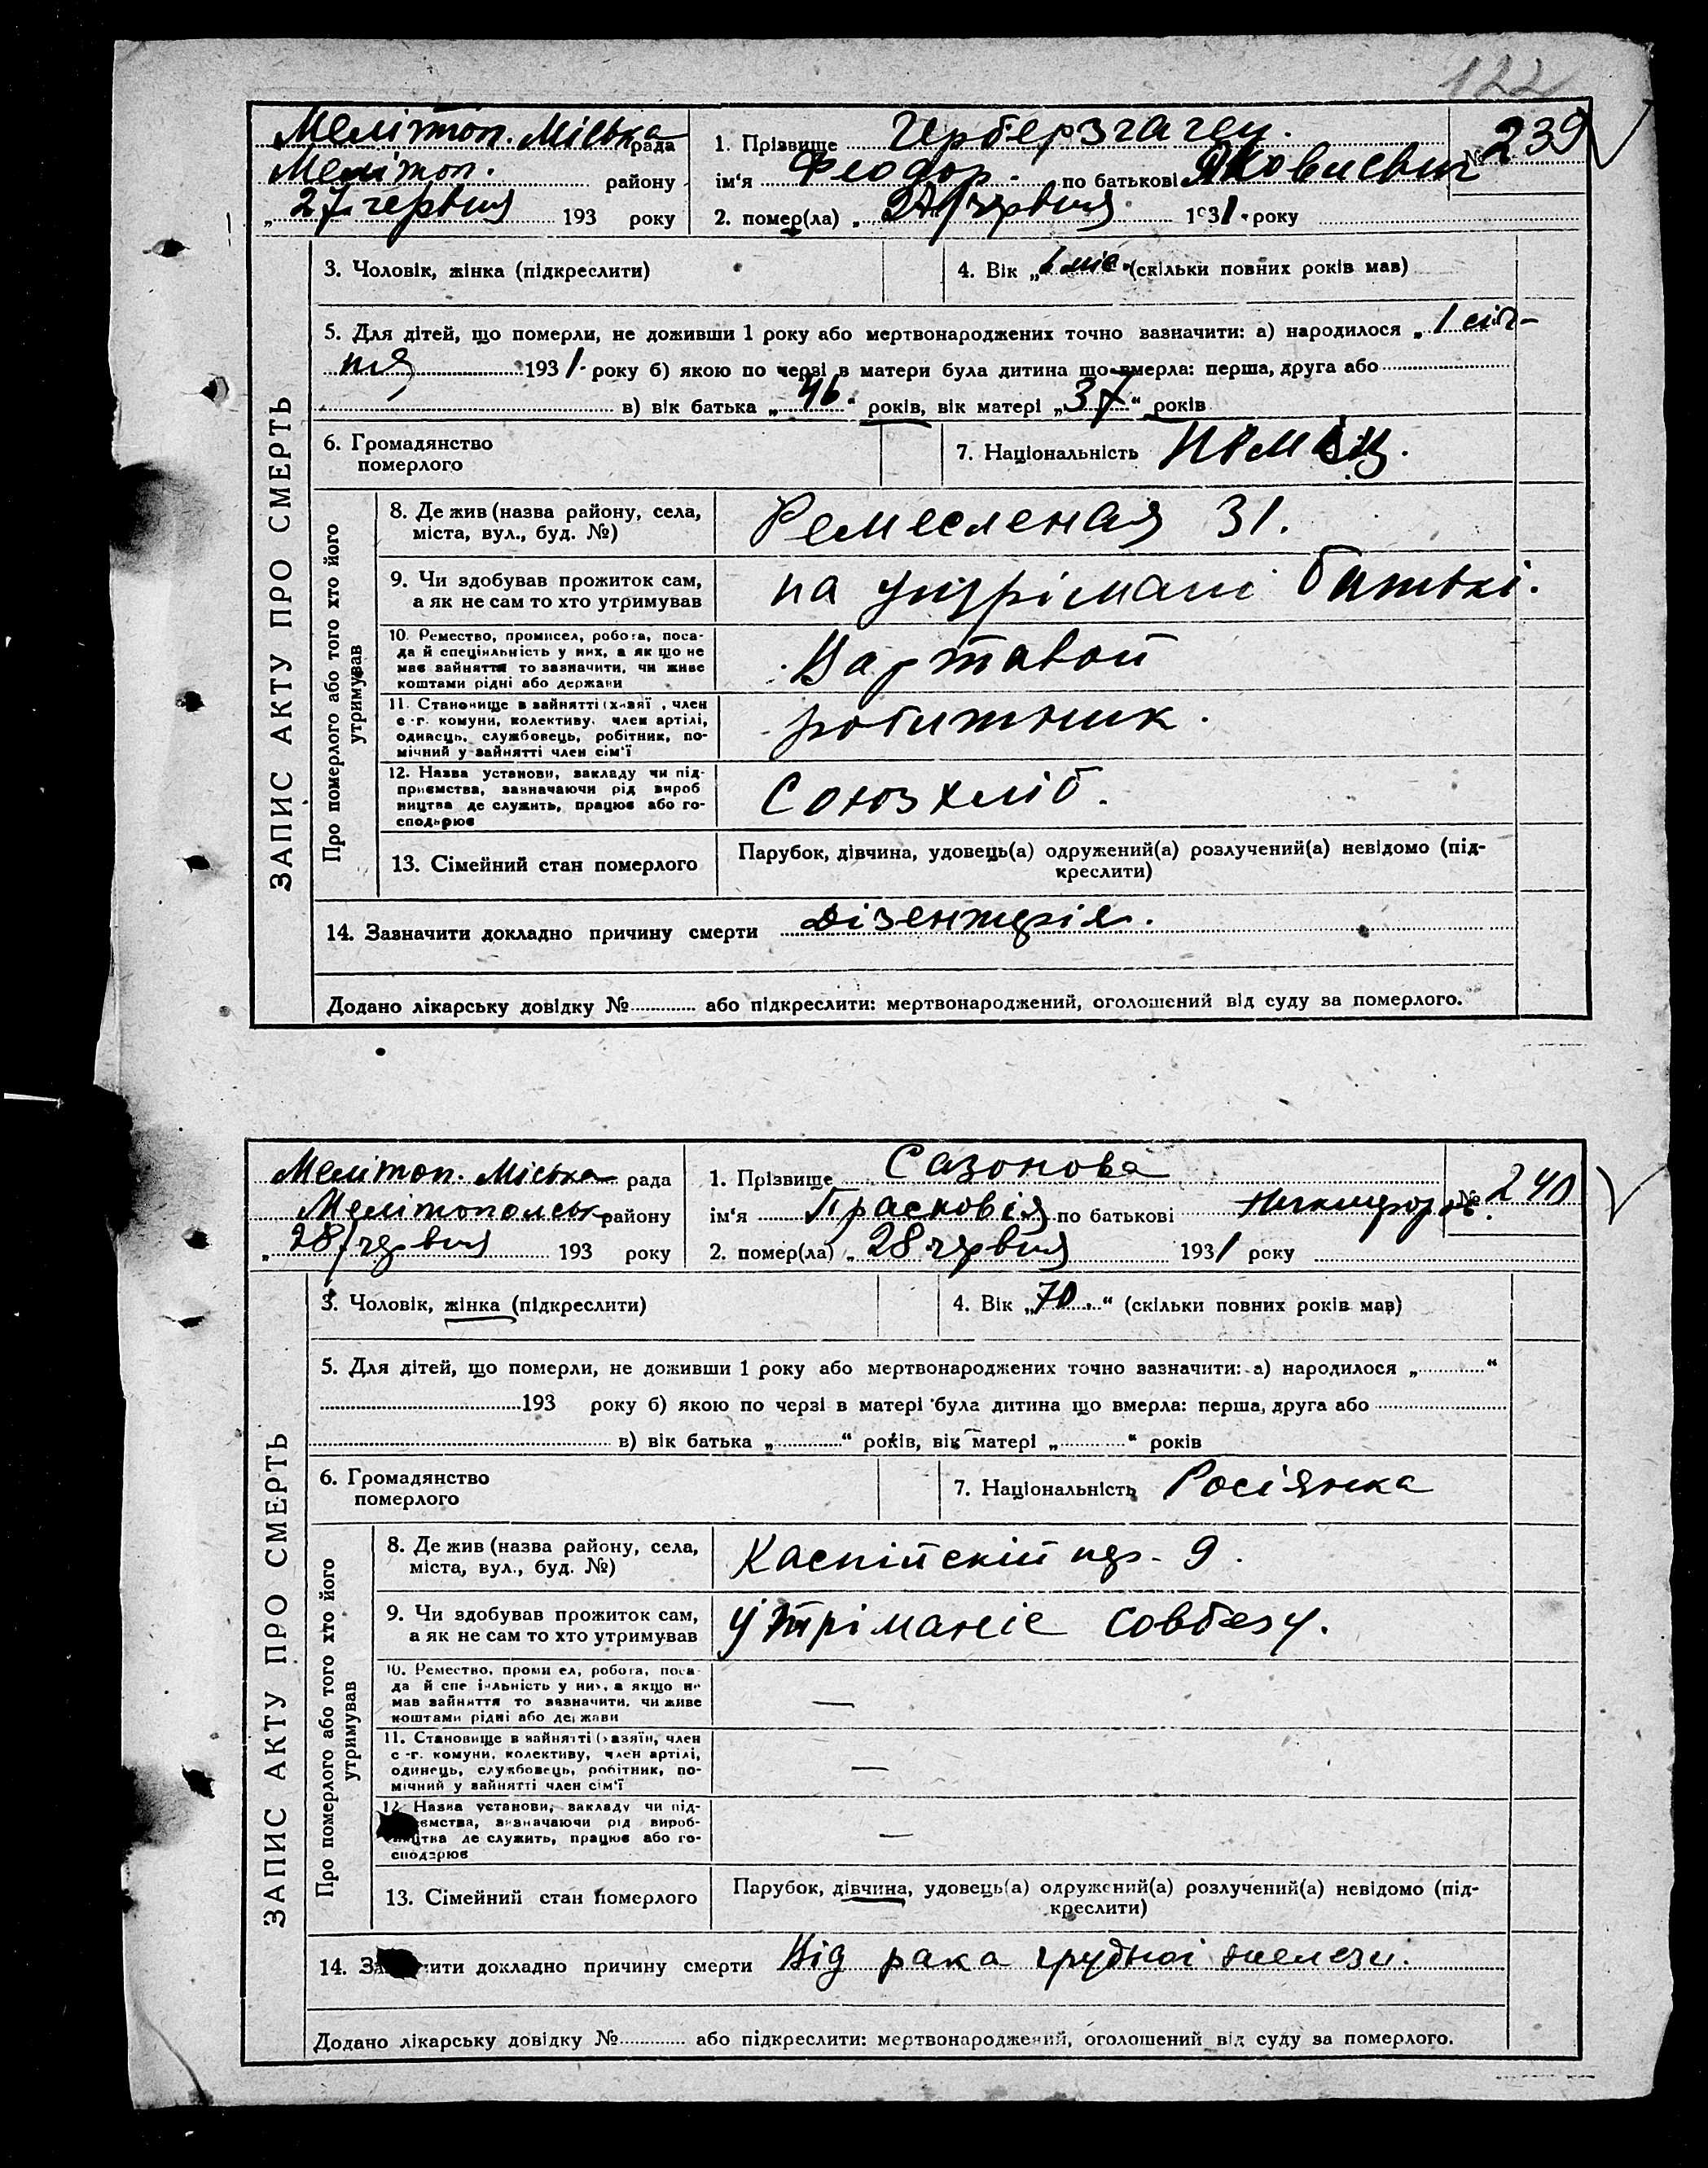 122
Мелітоп. Міська рада
Мелітоп. району
„27 червня 193 року
1. Прізвище
№ 239
ім'я Феодор. по батькові Яковлевич
2. помер(ла) „27 червня 1931. року
ЗАПИС АКТУ ПРО СМЕРТЬ
3. Чоловік, жінка (підкреслити)
4. Вік „ міс." (скільки повних років мав)
5. Для дітей, що померли, не доживши 1 року або мертвонароджених точно зазначити: а) народилося „1 січ-
ня 1931. року б) якою по черзі в матери була дитина що вмерла: перша, друга або
в) вік батька „46" років, вік матері „37" років
6. Громадянство
померлого
7. Національність Німець.
Про померлого або того хто його
утримував
8. Де жив (назва району, села,
міста, вул., буд. №)
Ремесленая 31.
9. Чи здобував прожиток сам,
а як не сам то хто утримував
на утрімані батькі.
10. Ремество, промисел, робота, поса-
да й спеціяльність у них, а як що не
має зайняття то зазначити, чи живе
коштами рідні або держави
Вартавой
11. Становище в зайнятті (хазяї , член
с.-г. комуни, колективу, член артілі,
одинець, службовець, робітник, по-
мічний у зайнятті член сім'ї
робитник.
12. Назва установи, закладу чи під-
приємства, зазначаючи рід вироб
ництва де служить, працює або го-
сподарює
Союзхліб.
13. Сімейний стан померлого
Парубок, дівчина, удовець(а) одружений(а) розлучений(а) невідомо (під-
креслити)
14. Зазначити докладно причину смерти Дізентерія.
Додано лікарську довідку № або підкреслити: мертвонароджений, оголошений від суду за померлого.
Мелітоп. Міська рада
Мелітопольськ району
„28 червня 193 року
1. Прізвище Сазонова
№ 240
ім'я Прасковія по батькові Никифоров.
2. помер(ла) „28 червня 1931 року
ЗАПИС АКТУ ПРО СМЕРТЬ
3. Чоловік, жінка (підкреслити)
4. Вік „70." (скільки повних років мав)
5. Для дітей, що померли, не доживши 1 року або мертвонароджених точно зазначити: а) народилося „ "
193 року б) якою по черзі в матері була дитина що вмерла: перша, друга або
в) вік батька „ " років, вік матері „ " років
6. Громадянство
померлого
7. Національність Росіянка
Про померлого або того хто його
утримував
8. Де жив (назва району, села,
міста, вул., буд. №)
Каспійскій пер. 9.
9. Чи здобував прожиток сам,
а як не сам то хто утримував
Утріманіє собезу.
10. Ремество, проми ел, робота, поса-
да й спе іяльність у них, а якщо не
мав зайняття то зазначити, чи живе
коштами рідні або держави
—
11. Становище в зайнятті (хазяїн, член
с.-г. комуни, колективу, член артілі,
одинець, службовець, робітник, по-
мічний у зайнятті член сім'ї
—
12. Назва установи, закладу чи під-
ємства, зазначаючи рід вироб-
ництва де служить, працює або го-
сподарює
—
13. Сімейний стан померлого
Парубок, дівчина, удовець(а) одружений(а) розлучений(а) невідомо (під-
креслити)
14. Зазначити докладно причину смерти Від рака грудної желези.
Додано лікарську довідку № або підкреслити: мертвонароджений, оголошений від суду за померлого.